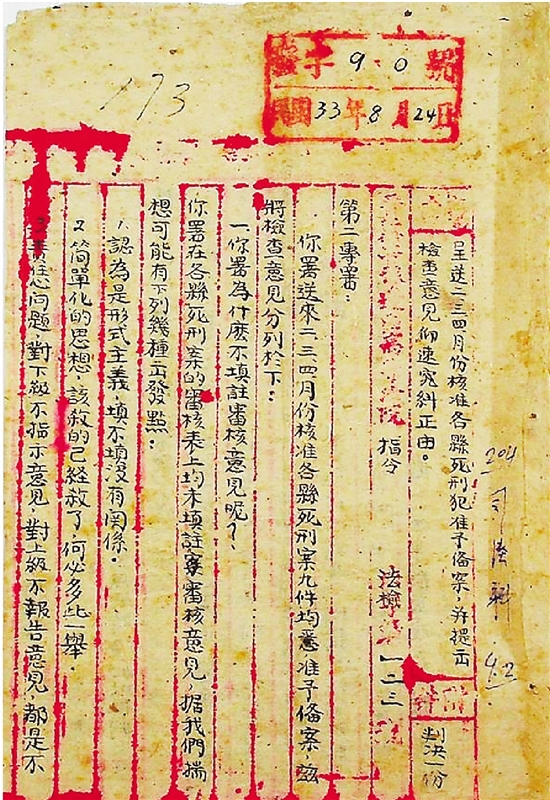 字 9 0 號
民國33年8月24日
173
204 司法科
42
呈送二三四月份核准各縣死刑犯准予備案,并提出
檢查意見仰速究糾正由。
附件
判決一份
院 指令 法檢 一二三 號
第二專署:
你署送來二、三、四月份核准各縣死刑案九件均悉准予備案,茲
將檢查意見分列於下:
一、你署為什麼不填註審核意見呢?
你署在各縣死刑案的審核表上均未填註審核意見,據我們揣
想可能有下列幾種出發點:
1、認為是形式主義,填不填沒有関係。
2、简單化的思想,該殺的已経殺了,何必多此一舉.
3、責任心问題,對下級不指示意見,對上級不報告意見,都是不